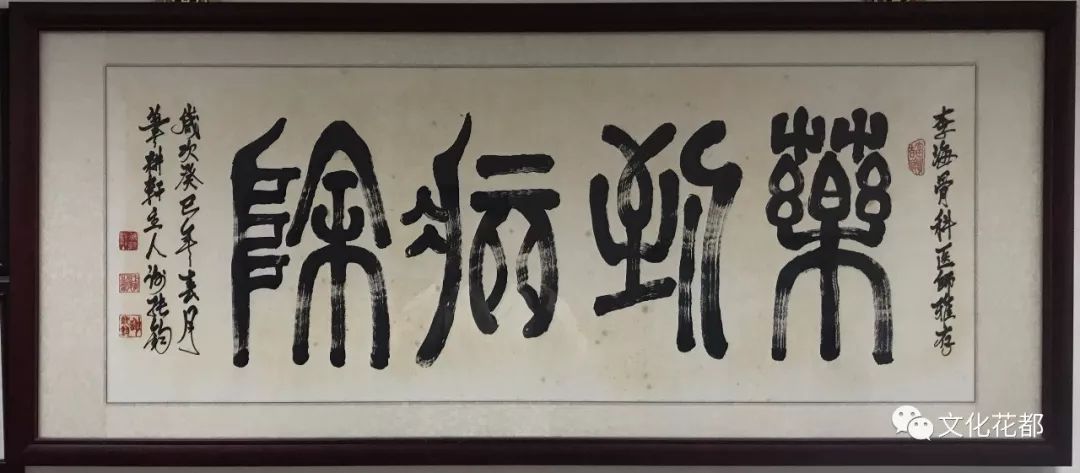 李海骨科医师雅存
藥到病除
歲次癸巳年春月
筆耕軒主人谢
文化花都